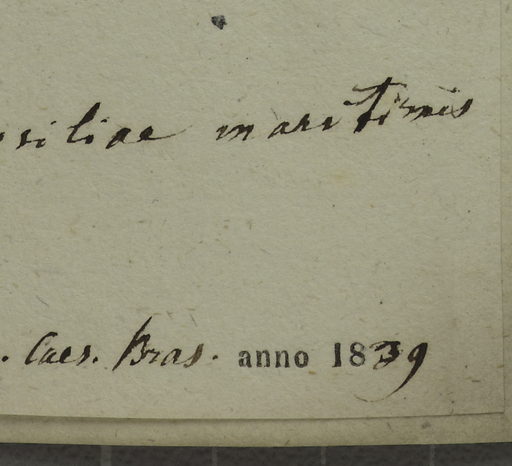 siliae maritimis
. Caes. Bras. anno 1839